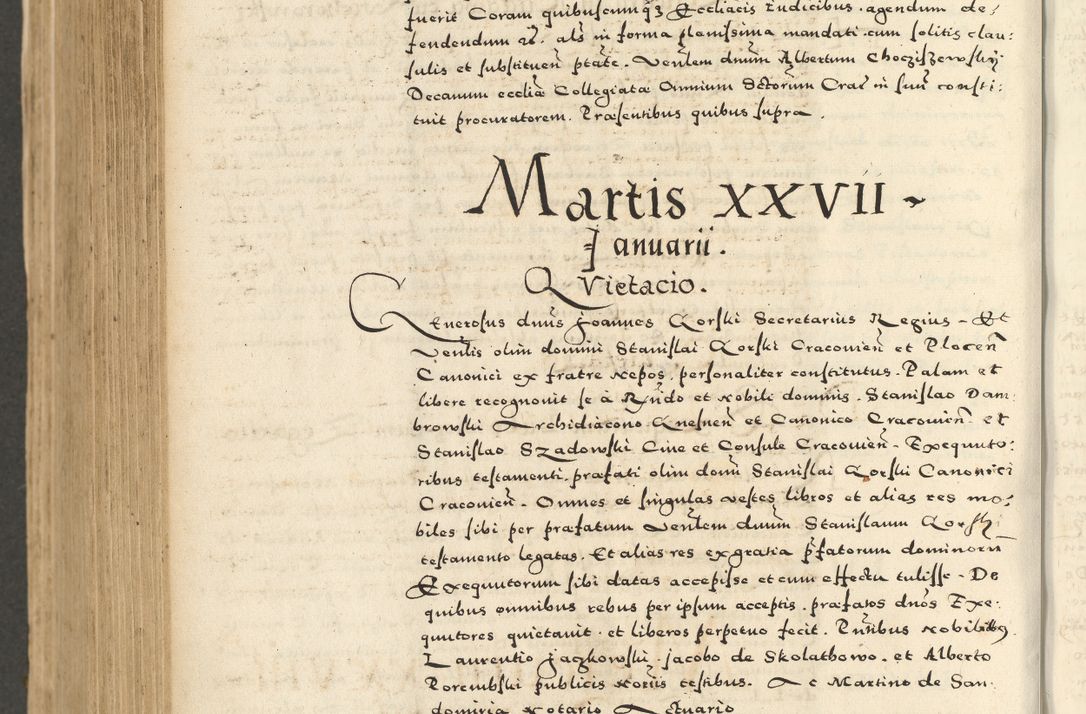 fuerit Coram quibuscumqȝ Ecclīacis Iudicibus. agendum de/
fendendum rc̄. als in forma plenissima mandati. cum solitis clau:
sulis et substituen̄ ptāte. Venlem dnūm Albertum Chocziszewskÿ
Decanum eccliæ Collegiatæ Omnium Sctōrum Crac̄ in suū consti:
tuit procuratorem. Præsentibus quibus supra.
Martis XXVII
Ianuarii.
QVietacio.
Generosus dnūs Joannes Gorski Secretarius Regius. Et
Venlis olim domini Stanislai Gorski Cracouien̄ et Plocen̄
Canonici ex fratre nepos, personaliter constitutus. Palam et
libere recognouit se à Rn̄do et nobili dominis. Stanislao Dam:
browski Archidiacono Gnesnen̄ et Canonico Cracouien̄. et
Stanislao Szadowski Ciue et Consule Cracouien̄. Exequuto:
ribus testamenti. præfati olim domi Stanislai Gorski Canonici
Cracouien̄. Omnes et singulas vestes libros et alias res mo:
biles sibi per præfatum Venlem dnūm Stanislaum Gorski
testamento legatas. Et alias res ex gratia pfatorum dominorū
Exequutorum sibi datas accepisse et cum effectu tulisse. De
quibus omnibus rebus per ipsum acceptis. præfatos dnōs Exe:
quutores quietauit. et liberos perpetuo fecit. Pn̄tibus nobilibus
Laurentio Jaczkowski. Jacobo de Skolathowo. et Alberto
Porembski publicis norijs testibus. Ac Martino de San:
domiria Notario Actuario